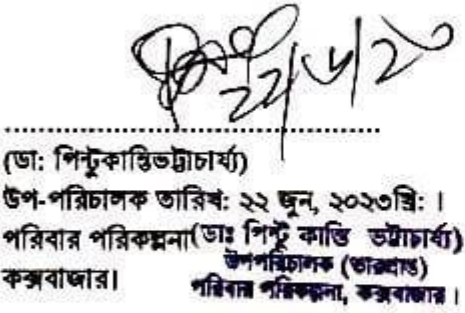 ২২/৬/২৩
(ডা: পিন্টুকান্তিভট্টাচার্য্য)
উপ-পরিচালক তারিখ: ২২ জুন, ২০২৩খ্রি: ।
পরিবার পরিকল্পনা (ডাঃ পিন্টু কান্তি ভট্টাচার্য্য)
উপপরিচালক (ভারপ্রাপ্ত)
কক্সবাজার। পরিবার পরিকল্পনা, কক্সবাজার।